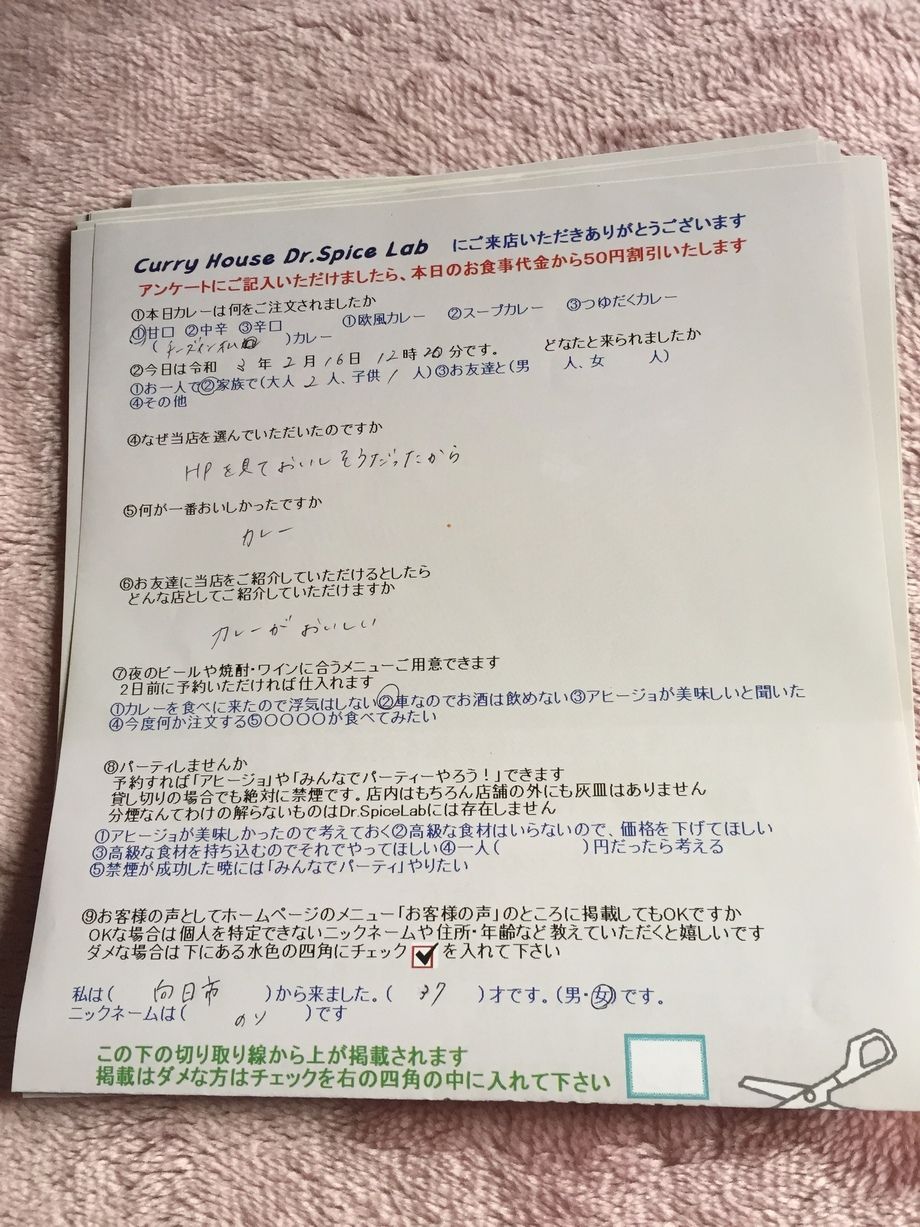 Curry House Dr.Spice Lab にご来店いただきありがとうございます
アンケートにご記入いただけましたら、本日のお食事代金から50円割引いたします
①本日カレーは何をご注文されましたか
①甘口 ②中辛 ③辛口 ①欧風カレー ②スープカレー ③つゆだくカレー
(チーズイン )カレー
②今日は令和 3 年 2 月 16 日 12 時 20 分です。 どなたと来られましたか
①お一人で②家族で(大人 2 人、子供 1 人)③お友達と(男 人、女 人)
④その他
④なぜ当店を選んでいただいたのですか
HPを見ておいしそうだったから
⑤何が一番おいしかったですか
カレー
⑥お友達に当店をご紹介していただけるとしたら
どんな店としてご紹介していただけますか
カレーがおいしい
⑦夜のビールや焼酎・ワインに合うメニューご用意できます
2日前に予約いただければ仕入れます
①カレーを食べに来たので浮気はしない②車なのでお酒は飲めない③アヒージョが美味しいと聞いた
④今度何か注文する⑤〇〇〇〇が食べてみたい
⑧パーティしませんか
予約すれば「アヒージョ」や「みんなでパーティーやろう!」できます
貸し切りの場合でも絶対に禁煙です。店内はもちろん店舗の外にも灰皿はありません
分煙なんてわけの解らないものはDr.SpiceLabには存在しません
①アヒージョが美味しかったので考えておく②高級な食材はいらないので、価格を下げてほしい
③高級な食材を持ち込むのでそれでやってほしい④一人( )円だったら考える
⑤禁煙が成功した暁には「みんなでパーティ」やりたい
⑨お客様の声としてホームページのメニュー「お客様の声」のところに掲載してもOKですか
OKな場合は個人を特定できないニックネームや住所・年齢など教えていただくと嬉しいです
ダメな場合は下にある水色の四角にチェック を入れて下さい
私は( 向日市 )から来ました。( 37 )才です。(男・女)です。
ニックネームは( のり )です
この下の切り取り線から上が掲載されます
掲載はダメな方はチェックを右の四角の中に入れて下さい